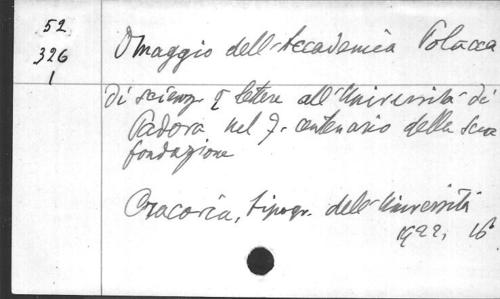 52
326
1
Omaggio dell'Accademia Polacca
di scienze e lettere all'Università di
Padova nel 7. centenario della sua
fondazione
Cracovia, tipogr. dell'Università
1922, 16°